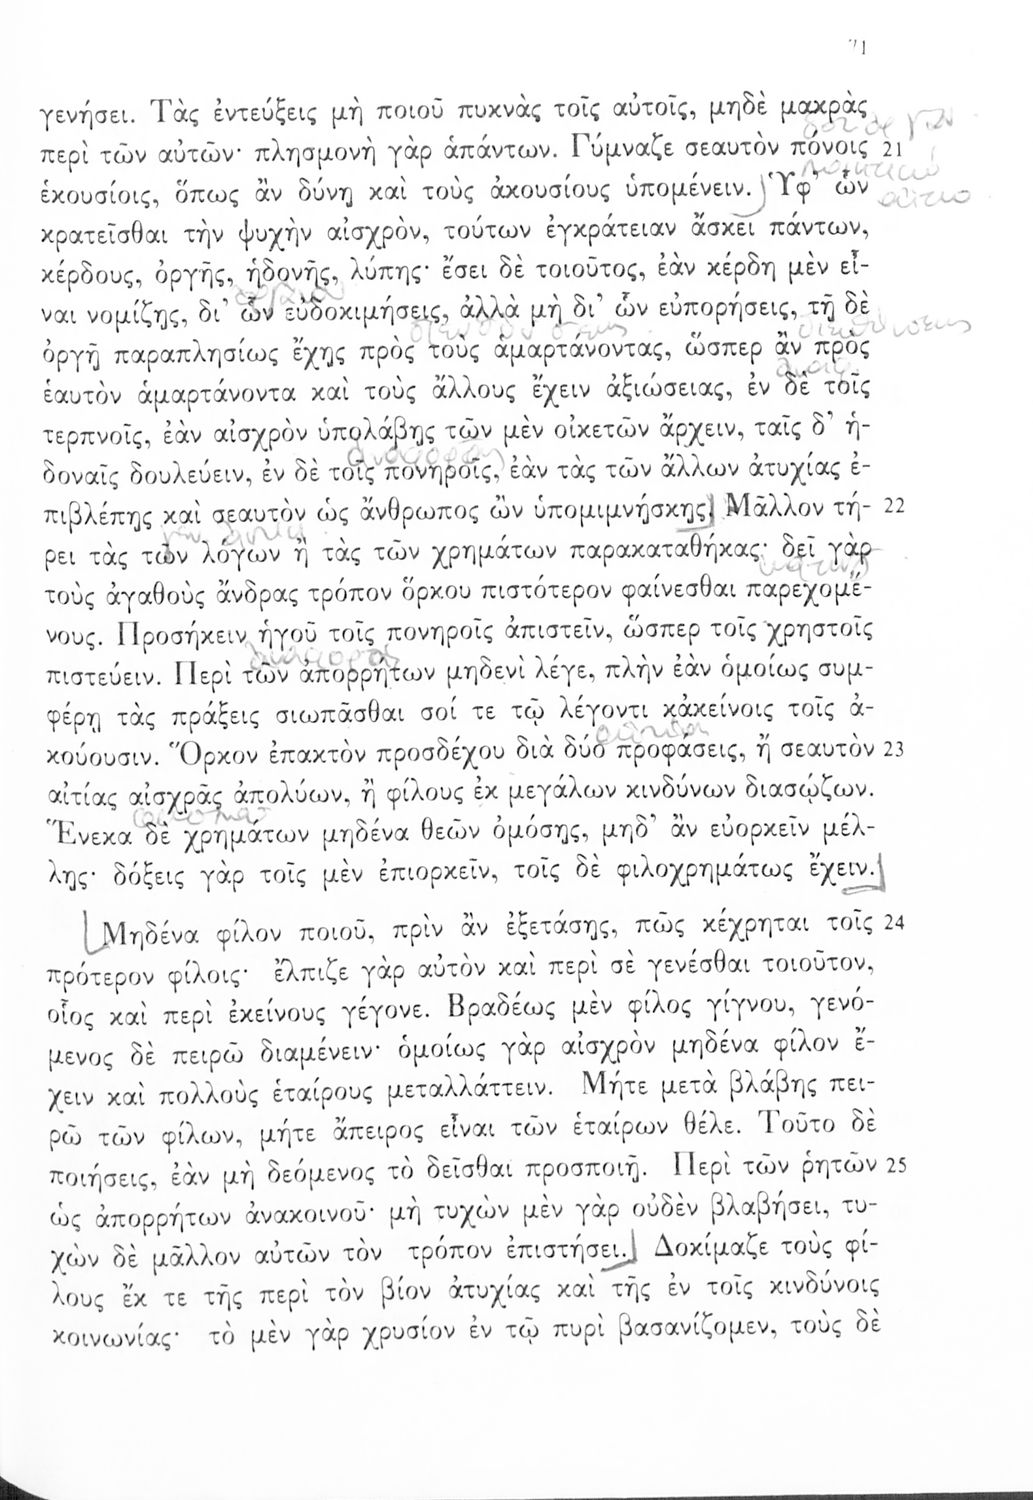 71
γενήσει. Τὰς ἐντεύξεις μὴ ποιοῦ πυκνὰς τοῖς αὐτοῖς, μηδὲ μακρὰς
περὶ τῶν αὐτῶν· πλησμονὴ γὰρ ἁπάντων. Γύμναζε σεαυτὸν πόνοις 21
ἑκουσίοις, ὅπως ἂν δύνῃ καὶ τοὺς ἀκουσίους ὑπομένειν. Ὑφ’ ὧν
κρατεῖσθαι τὴν ψυχὴν αἰσχρὸν, τούτων ἐγκράτειαν ἄσκει πάντων,
κέρδους, ὀργῆς, ἡδονῆς, λύπης· ἔσει δὲ τοιοῦτος, ἐὰν κέρδη μὲν εἶ-
ναι νομίζῃς, δι’ ὧν εὐδοκιμήσεις, ἀλλὰ μὴ δι’ ὧν εὐπορήσεις, τῇ δὲ
ὀργῇ παραπλησίως ἔχῃς πρὸς τοὺς ἁμαρτάνοντας, ὥσπερ ἂν πρὸς
ἑαυτὸν ἁμαρτάνοντα καὶ τοὺς ἄλλους ἔχειν ἀξιώσειας, ἐν δὲ τοῖς
τερπνοῖς, ἐὰν αἰσχρὸν ὑπολάβῃς τῶν μὲν οἰκετῶν ἄρχειν, ταῖς δ’ ἡ-
δοναῖς δουλεύειν, ἐν δὲ τοῖς πονηροῖς, ἐὰν τὰς τῶν ἄλλων ἀτυχίας ἐ-
πιβλέπῃς καὶ σεαυτὸν ὡς ἄνθρωπος ὢν ὑπομιμνήσκῃς. Μᾶλλον τή- 22
ρει τὰς τῶν λόγων ἢ τὰς τῶν χρημάτων παρακαταθήκας· δεῖ γὰρ
τοὺς ἀγαθοὺς ἄνδρας τρόπον ὅρκου πιστότερον φαίνεσθαι παρεχομέ-
νους. Προσήκειν ἡγοῦ τοῖς πονηροῖς ἀπιστεῖν, ὥσπερ τοῖς χρηστοῖς
πιστεύειν. Περὶ τῶν ἀπορρήτων μηδενὶ λέγε, πλὴν ἐὰν ὁμοίως συμ-
φέρῃ τὰς πράξεις σιωπᾶσθαι σοί τε τῷ λέγοντι κἀκείνοις τοῖς ἀ-
κούουσιν. Ὅρκον ἐπακτὸν προσδέχου διὰ δύο προφάσεις, ἢ σεαυτὸν 23
αἰτίας αἰσχρᾶς ἀπολύων, ἢ φίλους ἐκ μεγάλων κινδύνων διασῴζων.
Ἕνεκα δὲ χρημάτων μηδένα θεῶν ὀμόσῃς, μηδ’ ἂν εὐορκεῖν μέλ-
λῃς· δόξεις γὰρ τοῖς μὲν ἐπιορκεῖν, τοῖς δὲ φιλοχρημάτως ἔχειν.
Μηδένα φίλον ποιοῦ, πρὶν ἂν ἐξετάσῃς, πῶς κέχρηται τοῖς 24
πρότερον φίλοις· ἔλπιζε γὰρ αὐτὸν καὶ περὶ σὲ γενέσθαι τοιοῦτον,
οἷος καὶ περὶ ἐκείνους γέγονε. Βραδέως μὲν φίλος γίγνου, γενό-
μενος δὲ πειρῶ διαμένειν· ὁμοίως γὰρ αἰσχρὸν μηδένα φίλον ἔ-
χειν καὶ πολλοὺς ἑταίρους μεταλλάττειν. Μήτε μετὰ βλάβης πει-
ρῶ τῶν φίλων, μήτε ἄπειρος εἶναι τῶν ἑταίρων θέλε. Τοῦτο δὲ
ποιήσεις, ἐὰν μὴ δεόμενος τὸ δεῖσθαι προσποιῇ. Περὶ τῶν ῥητῶν 25
ὡς ἀπορρήτων ἀνακοινοῦ· μὴ τυχὼν μὲν γὰρ οὐδὲν βλαβήσει, τυ-
χὼν δὲ μᾶλλον αὐτῶν τὸν τρόπον ἐπιστήσει. Δοκίμαζε τοὺς φί-
λους ἔκ τε τῆς περὶ τὸν βίον ἀτυχίας καὶ τῆς ἐν τοῖς κινδύνοις
κοινωνίας· τὸ μὲν γὰρ χρυσίον ἐν τῷ πυρὶ βασανίζομεν, τοὺς δὲ